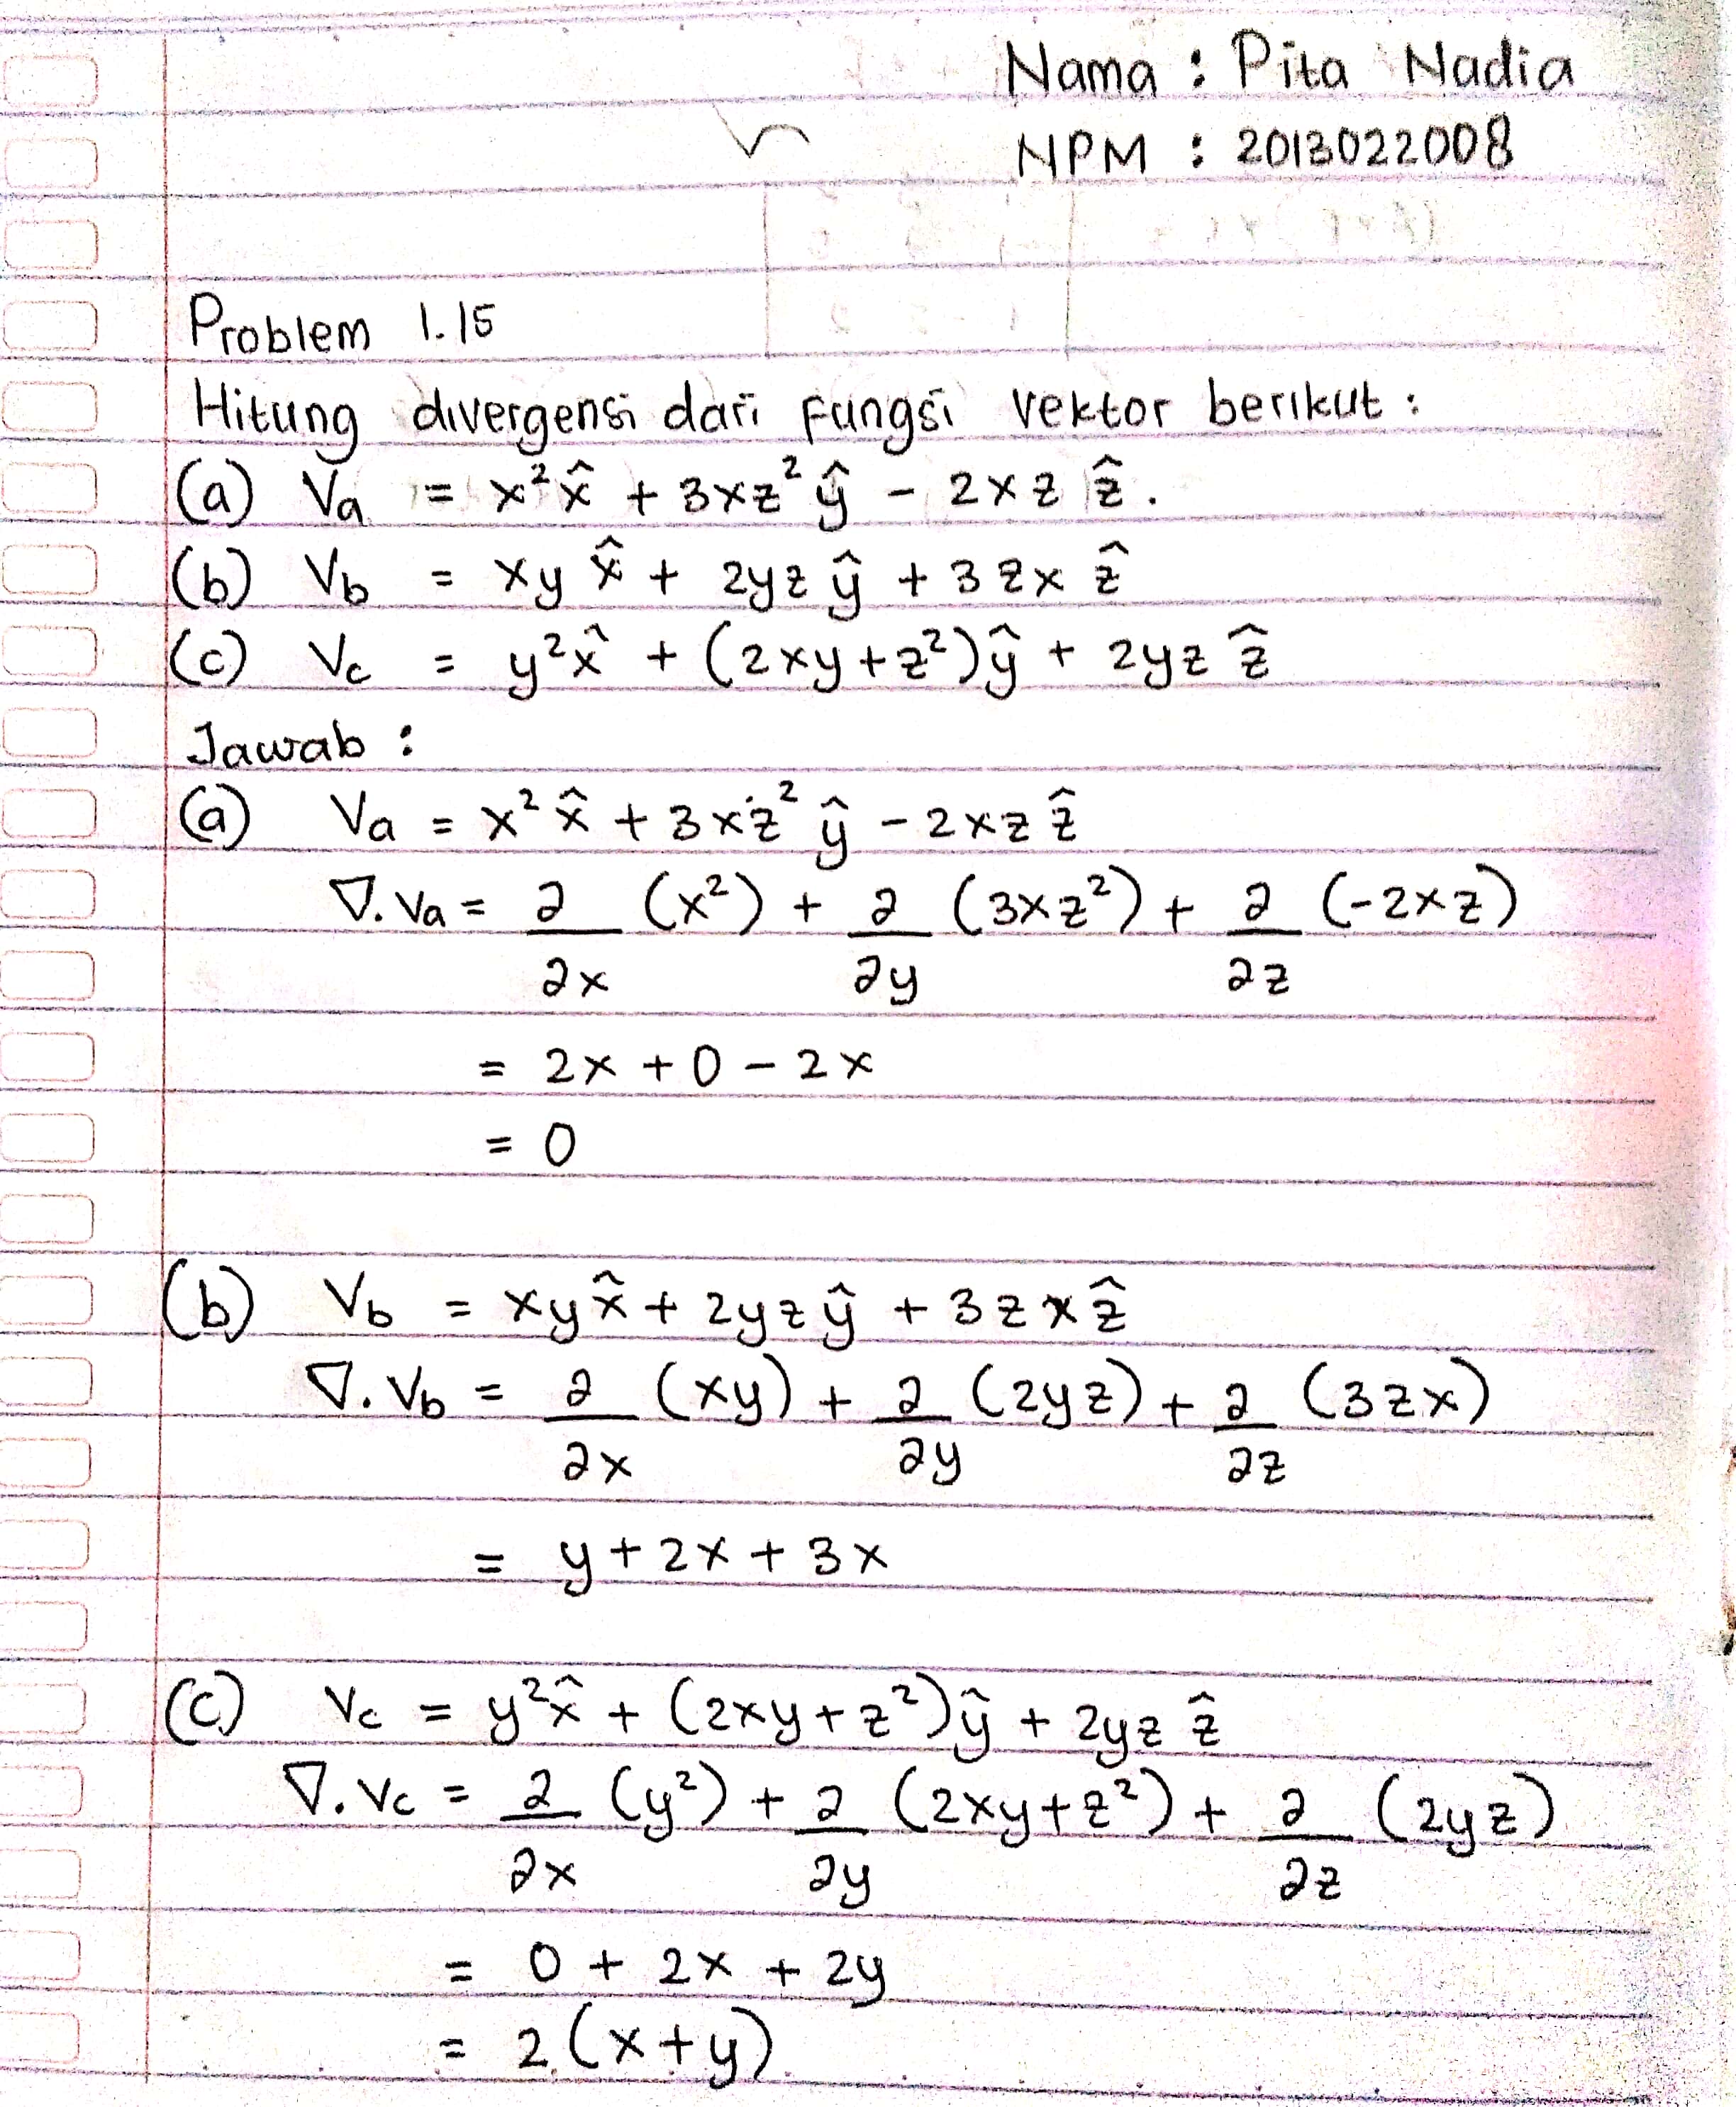 Nama : Pita Nadia
NPM : 2013022008
Problem 1.15
Hitung divergensi dari fungsi vektor berikut :
(a) Va = x² x̂ + 3xz² ŷ - 2xz ẑ.
(b) Vb = xy x̂ + 2yz ŷ + 3zx ẑ
(c) Vc = y² x̂ + (2xy+z²) ŷ + 2yz ẑ
Jawab :
(a) Va = x² x̂ + 3xz² ŷ - 2xz ẑ
∇. Va = ∂/∂x (x²) + ∂/∂y (3xz²) + ∂/∂z (-2xz)
= 2x + 0 - 2x
= 0
(b) Vb = xy x̂ + 2yz ŷ + 3zx ẑ
∇. Vb = ∂/∂x (xy) + ∂/∂y (2yz) + ∂/∂z (3zx)
= y + 2x + 3x
(c) Vc = y² x̂ + (2xy+z²) ŷ + 2yz ẑ
∇. Vc = ∂/∂x (y²) + ∂/∂y (2xy+z²) + ∂/∂z (2yz)
= 0 + 2x + 2y
= 2(x+y)